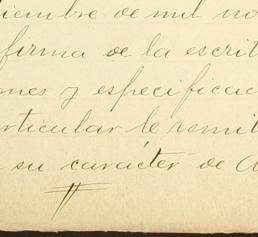 ciembre de mil no
firma de la escrit
ones y especificac
articular le remit
su carácter de A